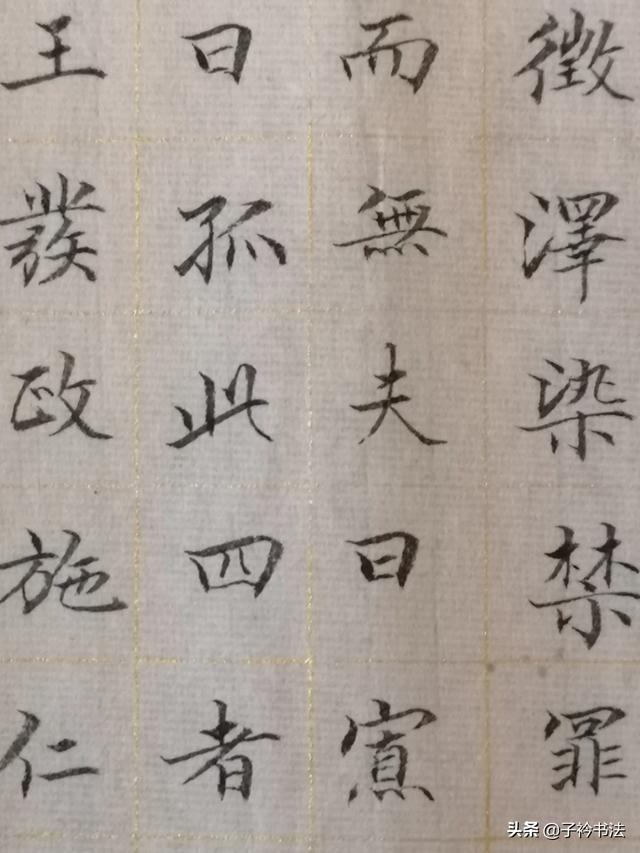 徵澤染禁罪
而無夫曰寡
曰孤此四者
王發政施仁
头条 @子衿书法